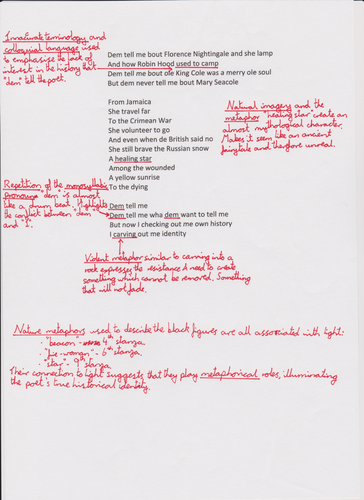 Immature terminology and
colloquial language used
to emphasise the lack of
interest in the history that
"dem" tell the poet.
Dem tell me bout Florence Nightingale and she lamp
And how Robin Hood used to camp
Dem tell me bout ole King Cole was a merry ole soul
But dem never tell me bout Mary Seacole
From Jamaica
She travel far
To the Crimean War
She volunteer to go
And even when de British said no
She still brave the Russian snow
A healing star
Among the wounded
A yellow sunrise
To the dying
Natural imagery and the
metaphor "healing star" create an
almost mythological character.
Makes it seem like an ancient
fairytale and therefore unreal.
Repetition of the monosyllabic
pronoun "dem" is almost
like a drum beat. Highlights
the conflict between "dem"
and "I".
Dem tell me
Dem tell me wha dem want to tell me
But now I checking out me own history
I carving out me identity
Violent metaphor similar to carving into a
rock expresses the resistance & need to create
something which cannot be removed. Something
that will not fade.
Nature metaphors used to describe the black figures are all associated with light:
· "beacon" - 4th stanza
· "fire-woman" - 6th stanza
· "star" - 9th stanza
Their connection to light suggests that they play metaphorical roles, illuminating
the poet's true historical identity.